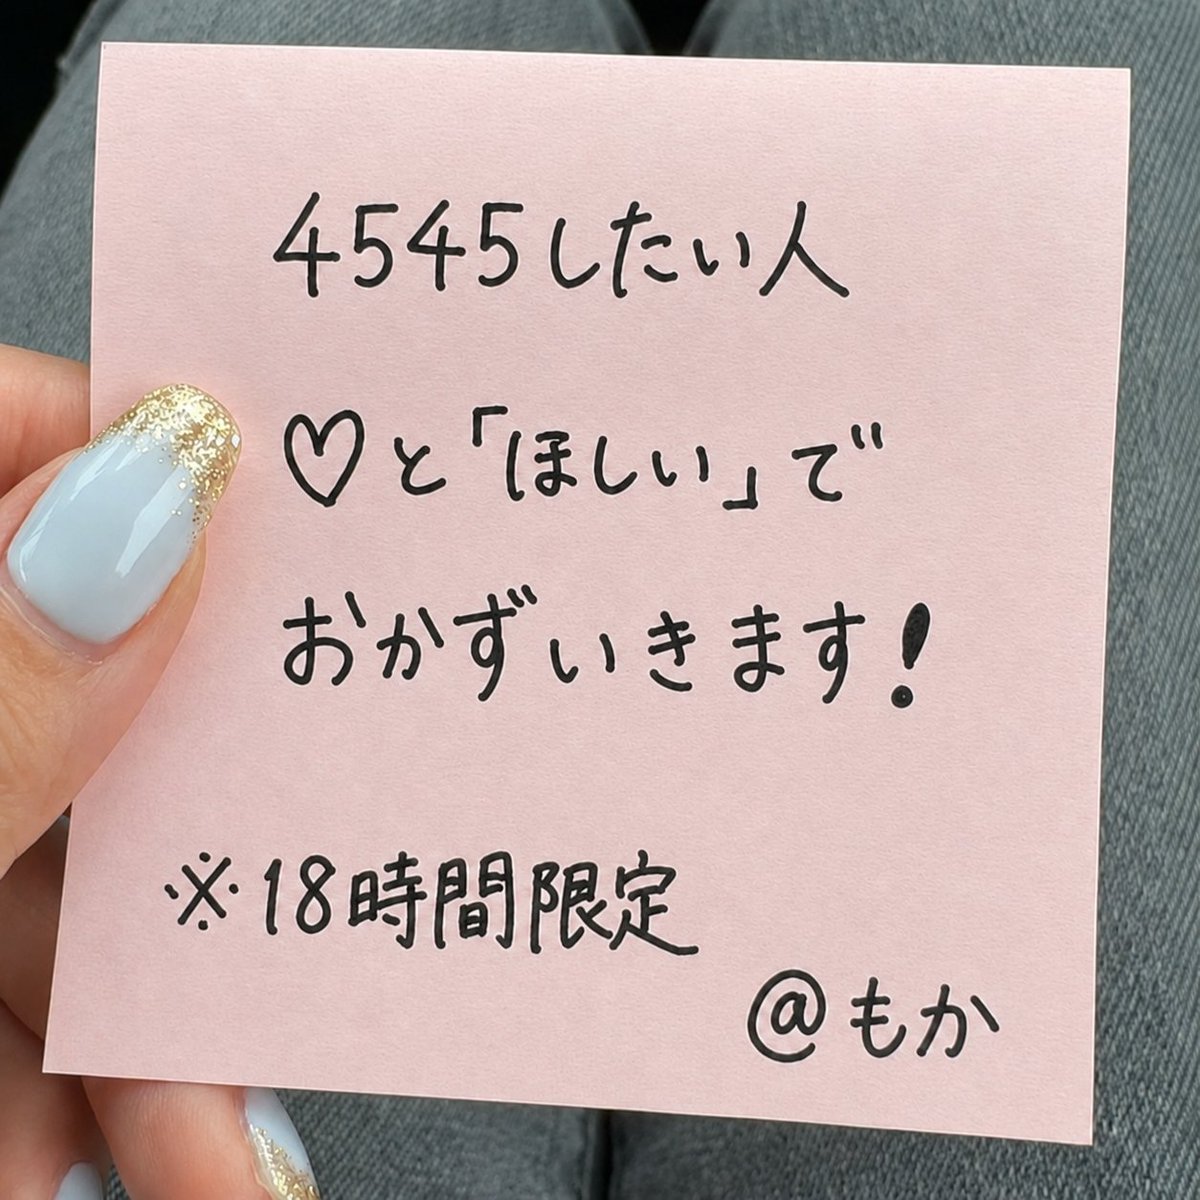 4545したい人
♡と「ほしい」で
おかずいきます!
※18時間限定
@もか